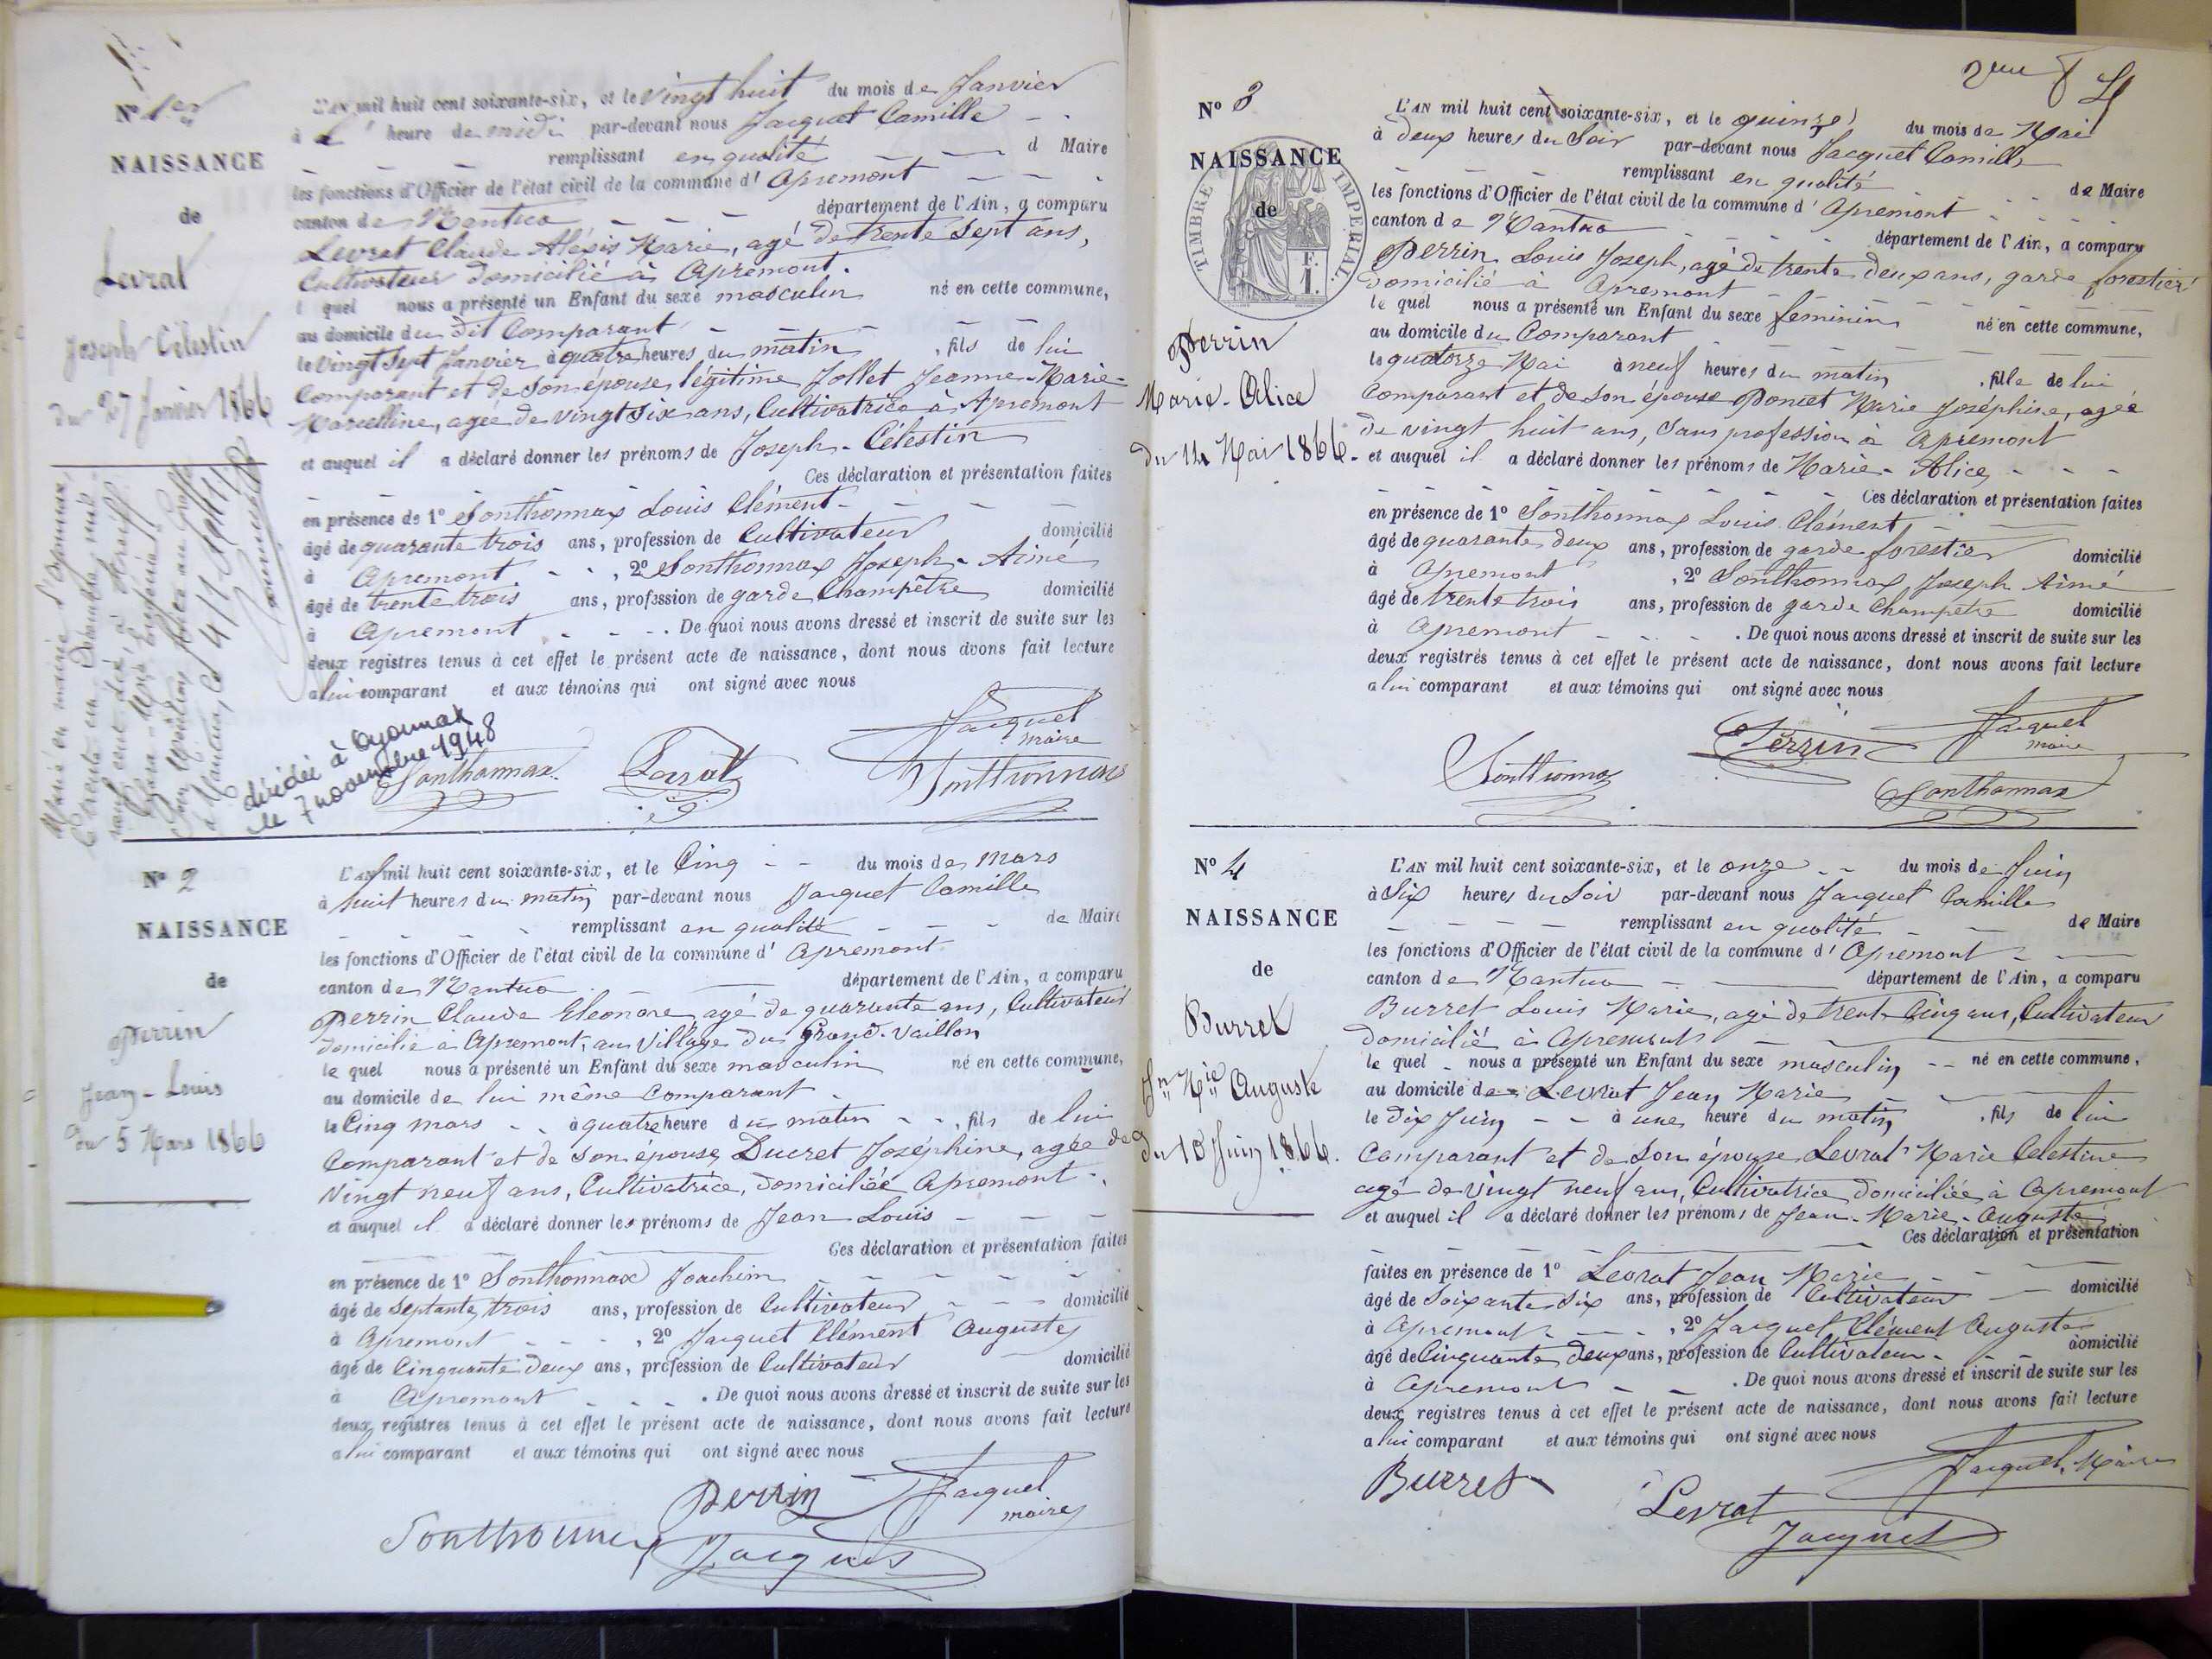 N° 1er
NAISSANCE
de
Levrat
Joseph Célestin
du 27 Janvier 1866
L'AN mil huit cent soixante-six, et le vingt huit du mois de Janvier
à heure de midi par-devant nous Jacquet Camille
remplissant en qualité d Maire
les fonctions d'Officier de l'état civil de la commune d' Apremont
canton de Nantua département de l'Ain, a comparu
Levrat Claude Aléxis Marie, agé de trente sept ans,
Cultivateur domicilié à Apremont.
l quel nous a présenté un Enfant du sexe masculin né en cette commune,
au domicile du dit Comparant
le vingt sept Janvier à quatre heures du matin, fils de lui
Comparant et de son épouse légitime Jollet Jeanne-Marie-
Marcelline, agée de vingt six ans, Cultivatrice à Apremont
et auquel il a déclaré donner les prénoms de Joseph-Célestin
Ces déclaration et présentation faites
en présence de 1° Sonthonnax Louis Clément
âgé de quarante trois ans, profession de Cultivateur domicilié
à Apremont, 2° Sonthonnax Joseph-Aimé
âgé de trente trois ans, profession de garde Champêtre domicilié
à Apremont. De quoi nous avons dressé et inscrit de suite sur les
deux registres tenus à cet effet le présent acte de naissance, dont nous avons fait lecture
a lui comparant et aux témoins qui ont signé avec nous
Jacquet
maire
Sonthonnax Levrat Sonthonnax
décédée à Oyonnax
le 7 novembre 1948
N° 2
NAISSANCE
de
Perrin
Jean-Louis
du 5 Mars 1866
L'AN mil huit cent soixante-six, et le Cinq du mois de Mars
à huit heures du matin par-devant nous Jacquet Camille
remplissant en qualité de Maire
les fonctions d'Officier de l'état civil de la commune d' Apremont
canton de Nantua département de l'Ain, a comparu
Perrin Claude Eléonore, agé de quarante ans, Cultivateur
domicilié à Apremont, au Village du Grand-Vaillon
le quel nous a présenté un Enfant du sexe masculin né en cette commune,
au domicile de lui même Comparant
le Cinq mars à quatre heure du matin, fils de lui
Comparant et de son épouse Ducret Joséphine, agée de
vingt neuf ans, Cultivatrice, domiciliée Apremont
et auquel il a déclaré donner les prénoms de Jean Louis
Ces déclaration et présentation faites
en présence de 1° Sonthonnax Joachim
âgé de septante trois ans, profession de Cultivateur domicilié
à Apremont, 2° Jacquet Clément Auguste
âgé de Cinquante deux ans, profession de Cultivateur domicilié
à Apremont. De quoi nous avons dressé et inscrit de suite sur les
deux registres tenus à cet effet le présent acte de naissance, dont nous avons fait lecture
a lui comparant et aux témoins qui ont signé avec nous
Perrin Jacquet
maire
Jacquet
N° 3
NAISSANCE
de
TIMBRE IMPERIAL
F.
1.
Perrin
Marie-Alice
du 14 Mai 1866.
L'AN mil huit cent soixante-six, et le quinze du mois de Mai
à deux heures du Soir par-devant nous Jacquet Camille
remplissant en qualité de Maire
les fonctions d'Officier de l'état civil de la commune d' Apremont
canton de Nantua département de l'Ain, a comparu
Perrin Louis Joseph, agé de trente deux ans, garde forestier
domicilié à Apremont
le quel nous a présenté un Enfant du sexe féminin né en cette commune,
au domicile du Comparant
le quatorze Mai à neuf heures du matin, fille de lui
Comparant et de son épouse Poncet Marie Joséphine, agée
de vingt huit ans, sans profession à Apremont
et auquel il a déclaré donner les prénoms de Marie-Alice
Ces déclaration et présentation faites
en présence de 1° Sonthonnax Louis Clément
âgé de quarante deux ans, profession de garde forestier domicilié
à Apremont, 2° Sonthonnax Joseph Aimé
âgé de trente trois ans, profession de garde Champêtre domicilié
à Apremont. De quoi nous avons dressé et inscrit de suite sur les
deux registres tenus à cet effet le présent acte de naissance, dont nous avons fait lecture
a lui comparant et aux témoins qui ont signé avec nous
Perrin Jacquet
maire
Sonthonnax Sonthonnax
N° 4
NAISSANCE
de
Burret
Jn Mie Auguste
du 10 Juin 1866.
L'AN mil huit cent soixante-six, et le onze du mois de Juin
à Six heures du Soir par-devant nous Jacquet Camille
remplissant en qualité de Maire
les fonctions d'Officier de l'état civil de la commune d' Apremont
canton de Nantua département de l'Ain, a comparu
Burret Louis Marie, agé de trente Cinq ans, Cultivateur
domicilié à Apremont
le quel nous a présenté un Enfant du sexe masculin né en cette commune,
au domicile de Levrat Jean Marie
le dix Juin à une heure du matin, fils de lui
Comparant et de Son épouse Levrat Marie Celestine
agé de vingt neuf ans, Cultivatrice domiciliée à Apremont
et auquel il a déclaré donner les prénoms de Jean-Marie-Auguste
Ces déclaration et présentation
faites en présence de 1° Levrat Jean Marie
âgé de Soixante Six ans, profession de Cultivateur domicilié
à Apremont, 2° Jacquet Clément Auguste
âgé de Cinquante deux ans, profession de Cultivateur domicilié
à Apremont. De quoi nous avons dressé et inscrit de suite sur les
deux registres tenus à cet effet le présent acte de naissance, dont nous avons fait lecture
a lui comparant et aux témoins qui ont signé avec nous
Jacquet, Maire
Burret
Levrat
Jacquet